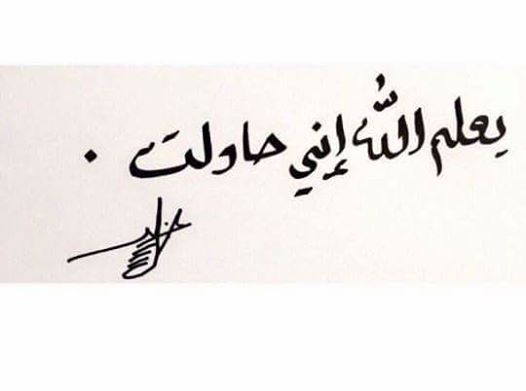 يعلم اللّٰه إني حاولت .